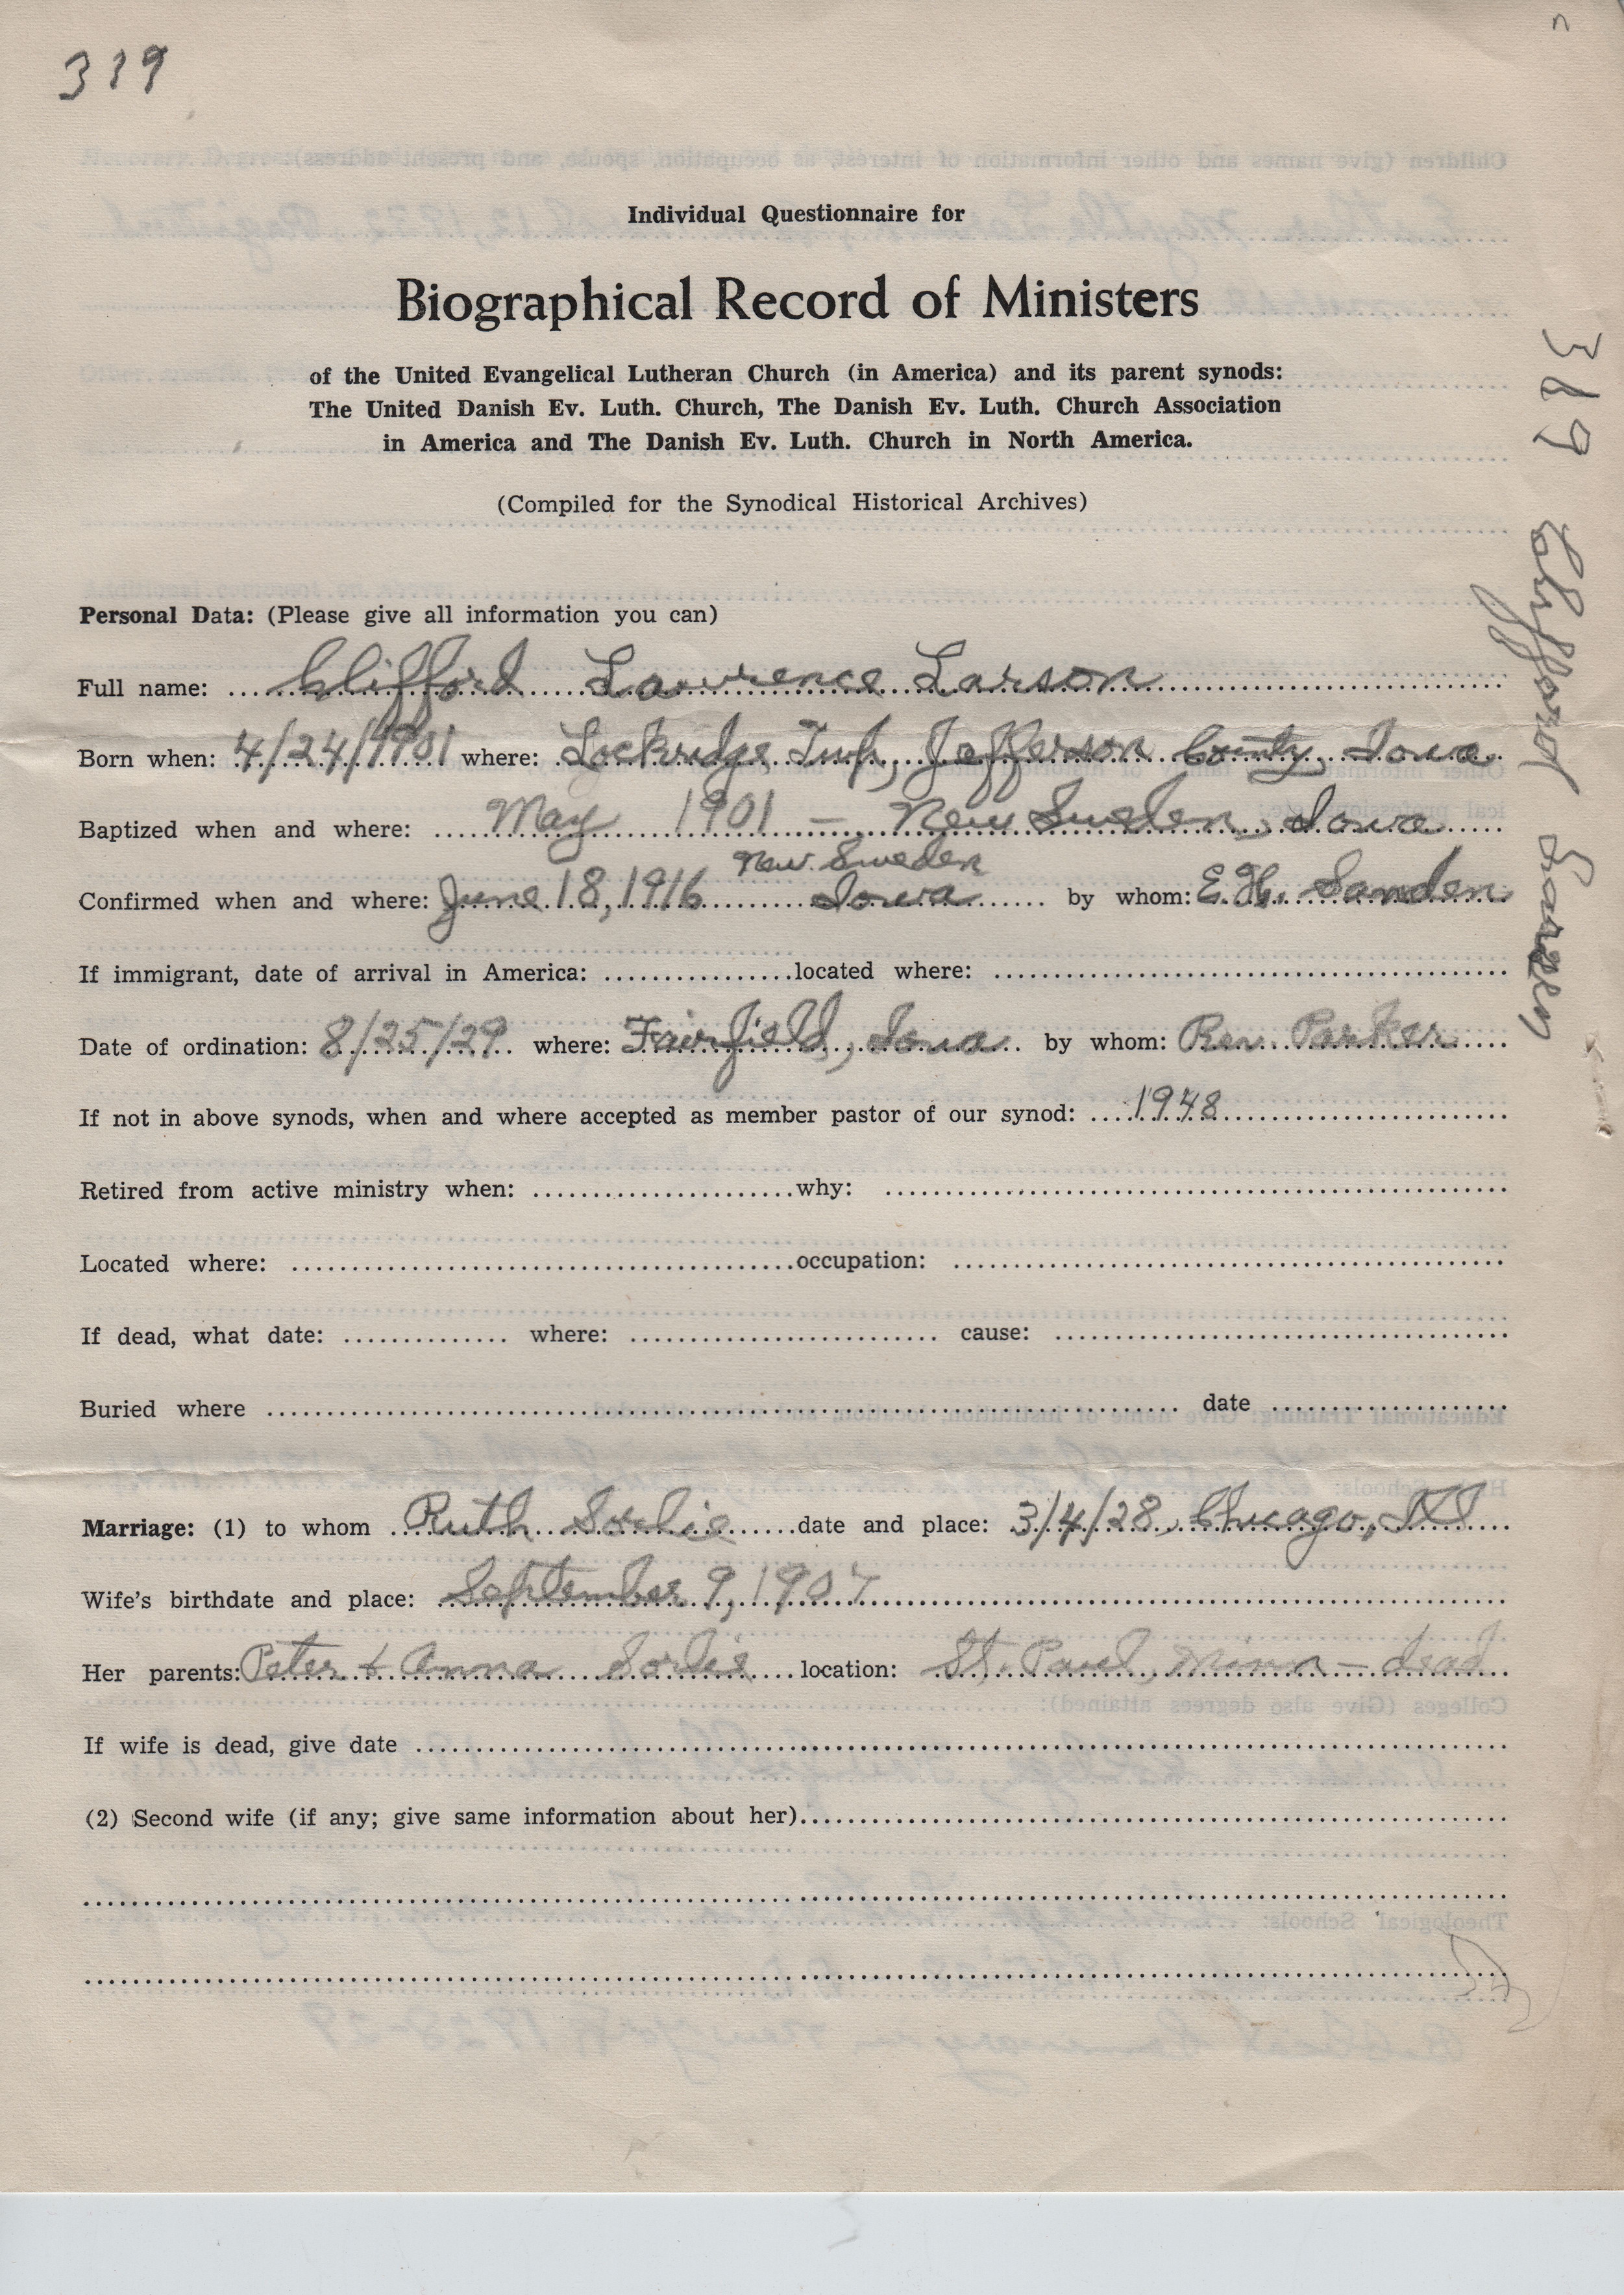 319
Individual Questionnaire for
Biographical Record of Ministers
of the United Evangelical Lutheran Church (in America) and its parent synods:
The United Danish Ev. Luth. Church, The Danish Ev. Luth. Church Association
in America and The Danish Ev. Luth. Church in North America.
(Compiled for the Synodical Historical Archives)
319 Clifford Larsen
Personal Data: (Please give all information you can)
Full name: Clifford Lawrence Larson
Born when: 4/24/1901 where: Lockridge Twp, Jefferson County, Iowa
Baptized when and where: May 1901 – New Sweden, Iowa
New Sweden
Confirmed when and where: June 18, 1916 Iowa by whom: E.H. Sanden
If immigrant, date of arrival in America: located where:
Date of ordination: 8/25/29 where: Fairfield, Iowa by whom: Rev. Parker
If not in above synods, when and where accepted as member pastor of our synod: 1948
Retired from active ministry when: why:
Located where: occupation:
If dead, what date: where: cause:
Buried where date
Marriage: (1) to whom Ruth Sorlie date and place: 3/4/28, Chicago, Ill
Wife's birthdate and place: September 9, 1907
Her parents: Peter & Anna Sorlie location: St. Paul, Minn – dead
If wife is dead, give date
(2) Second wife (if any; give same information about her)